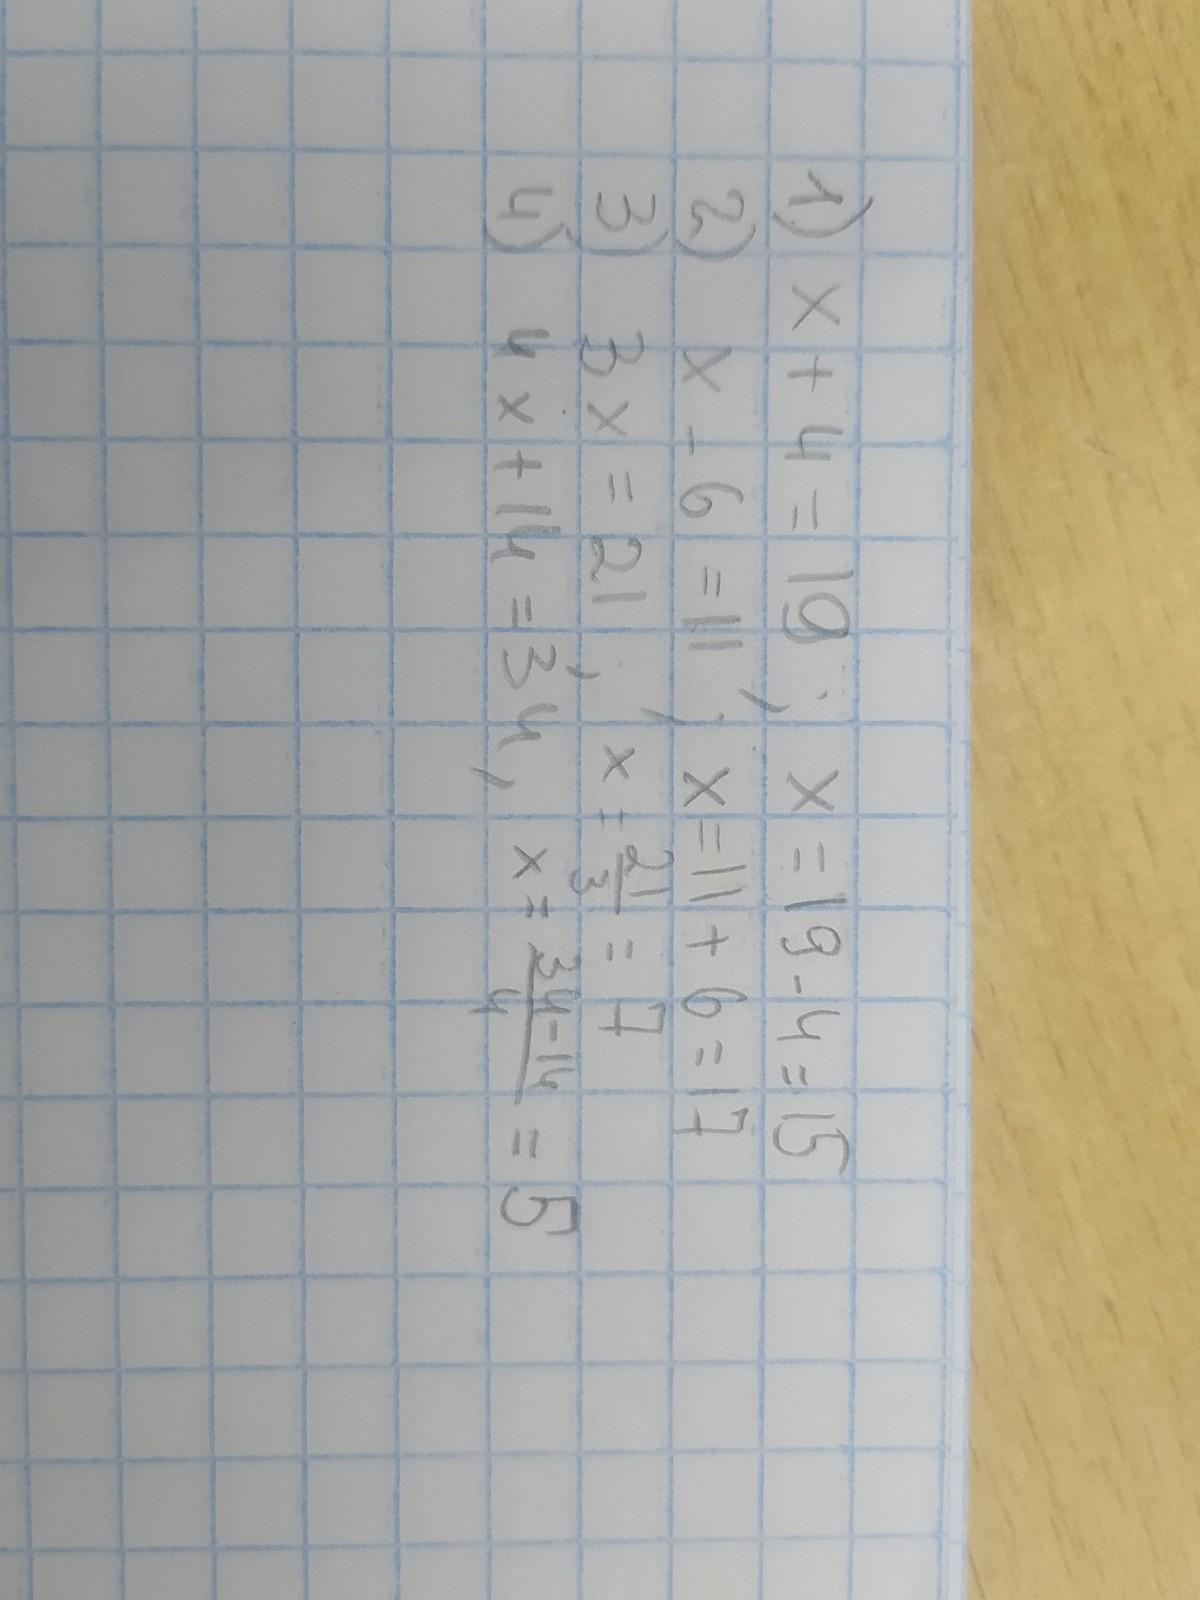 1) x + 4 = 19; x = 19 - 4 = 15
2) x - 6 = 11; x = 11 + 6 = 17
3) 3x = 21, x = 21/3 = 7
4) 4x + 14 = 34, x = (34-14)/4 = 5